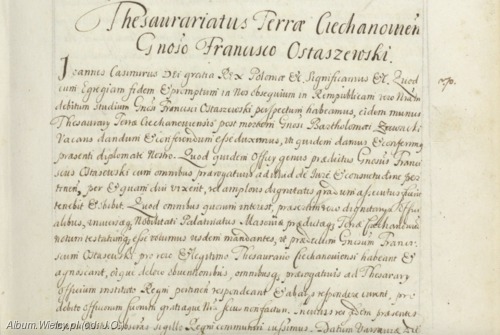 Thesaurariatus Terræ Ciechanowien
Gnoso Francisco Ostaszewski.
Joannes Casimirus Dei gratia Rex Poloniæ &. Significamus &. Quod
cum Egregiam fidem & promptum in Nos obsequium in Rempublicam vero
debitum Studium Gnsi Francisci Ostaszewski perspectum habeamus, eidem munus
Thesaurarij Terræ Ciechanoviensis post mortem Gnosi Bartholomæi
Vacans dandum & conferendum esse duximus, uti quidem damus & conferimus
præsenti diplomate Nostro. Quod quidem Officij genus præditus Gnosus Franciscus
Ostaszewski cum omnibus prærogativis ad illud de Jure & consuetudine pertinen
per & quam diu vixerit, vel amplius dignitatis gradum assecutus fuerit
tenebit & habebit. Quod omnibus quorum interest, præsertim vero dignitarijs Officialibus,
universæq Nobilitati Palatinatus Masoviæ prædictæq Terræ Ciechanovien
notum testatumq esse volumus ijsdem mandantes, ut prædictum Gnosum Franciscum
Ostaszewski pro vero & legitimo Thesaurario Ciechanoviensi habeant &
agnoscant, eique de loco obventionibus, omnibusq prærogativis ad Thesaurarij
Officium instituto Regni pertinen respondeant & ab alijs responderi curent, pro
debito Officiorum suorum gratiaque Nra secus non facturi. In cuius rei fidem præsentes
sigillo Regni communiri iussimus. Datum Varsaviæ
Album.Wielcy.pl (dsJ.O.)